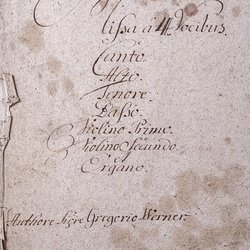 Missa à 4 Vocibus.
Canto.
Alto.
Tenore.
Basso.
Violino Primo.
Violino Secundo.
Organo.
Authore Sigre Gregorio Werner.